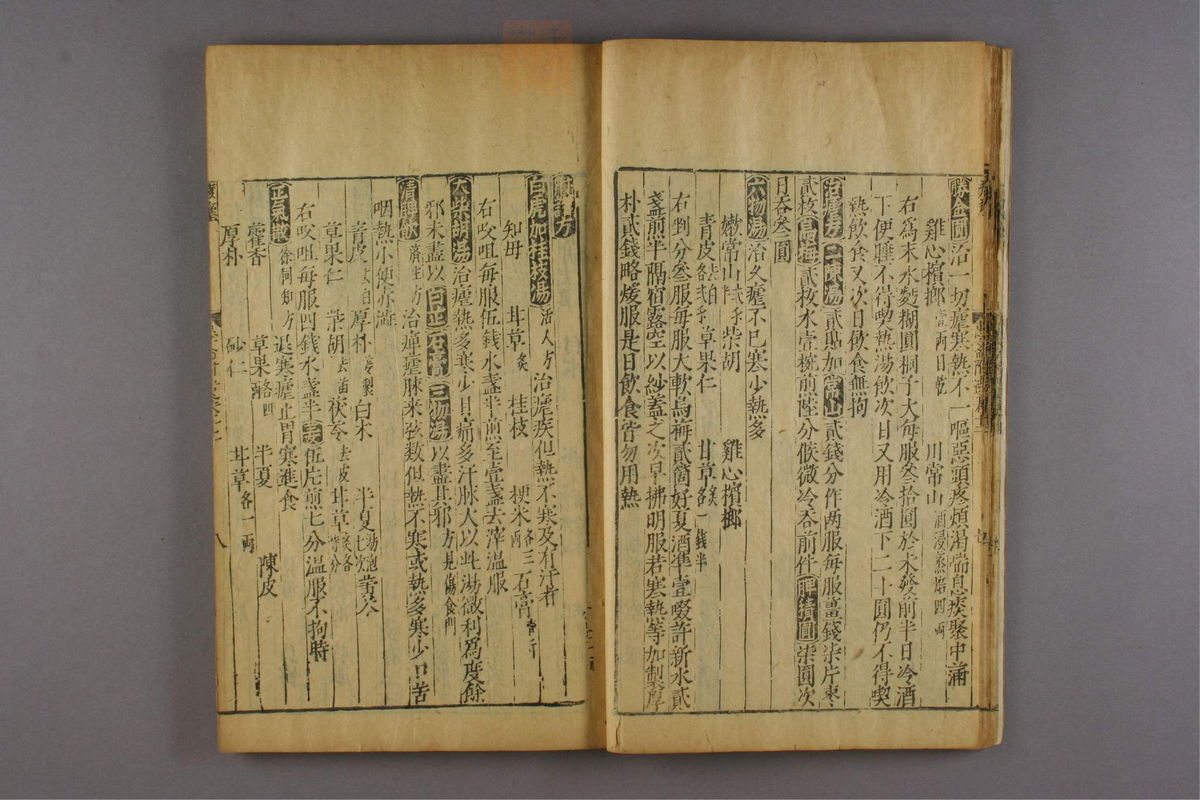 勝金圓治一切瘧寒熱不一嘔惡頭疼煩渴喘息痰聚中滿
雞心檳榔壹兩日乾 川常山酒浸蒸焙四兩
右爲末水麪糊圓桐子大每服叁拾圓於未發前半日冷酒
下便睡不得喫熱湯飲次日又用冷酒下二十圓仍不得喫
熱飲食又次日飲食無拘
治瘧方二陳湯貳貼加常山貳錢分作两服每服薑錢柒片棗
貳枚烏梅貳枚水壹椀煎陸分候微冷吞前件脾積圓柒圓次
日吞叁圓
六物湯治久瘧不巳寒少熱多
嫩常山 柴胡 雞心檳榔
青皮 草果仁 甘草各一錢半
右判分叁服每服大軟烏梅貳箇好夏酒準壹啜許新水貳
盞煎半隔宿露空以紗蓋之次早拂明服若寒熱等加製厚
朴貳錢略煖服是日飲食皆勿用熱
方
白虎加桂枝湯活人方治瘧疾但熱不寒及有汗者
知母 甘草炙 桂枝 粳米各三兩 石膏
右㕮咀每服伍錢水盞半煎至壹盞去滓溫服
大柴胡湯治瘧熱多寒少目痛多汗脉大以此湯微利爲度餘
邪未盡以白芷石膏三物湯以盡其邪方見傷食門
清脾飲濟生方治癉瘧脉來弦数但熱不寒或熱多寒少口苦
咽熱小便赤澁
青皮去白 厚朴姜製 白朮 半夏湯泡七次 黄芩
草果仁 柴胡去苗 茯苓去皮 甘草炙各等分
右㕮咀每服四錢水盞半姜伍片煎七分溫服不拘時
正氣散徐同知方退寒瘧止胃寒進食
藿香 草果各四兩 半夏 陳皮
厚朴 砂仁 甘草各一兩
八